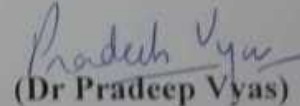 Pradeep Vyas
(Dr Pradeep Vyas)